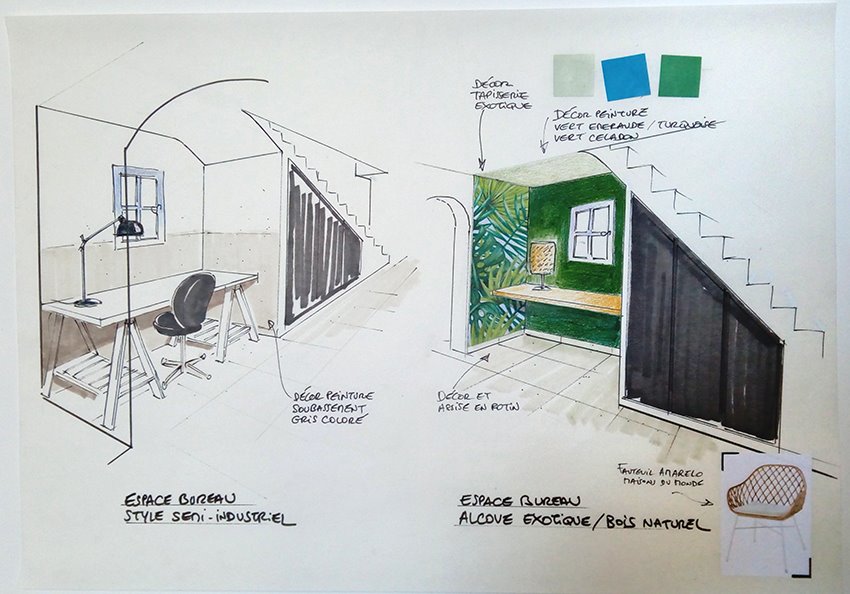 DÉCOR
TAPISSERIE
EXOTIQUE
DÉCOR PEINTURE
VERT EMERAUDE / TURQUOISE
VERT CELADON
DÉCOR PEINTURE
SOUBASSEMENT
GRIS COLORÉ
DÉCOR ET
ASSISE EN ROTIN
FAUTEUIL AMARELO
MAISONS DU MONDE
ESPACE BUREAU
STYLE SEMI-INDUSTRIEL
ESPACE BUREAU
ALCOVE EXOTIQUE / BOIS NATUREL